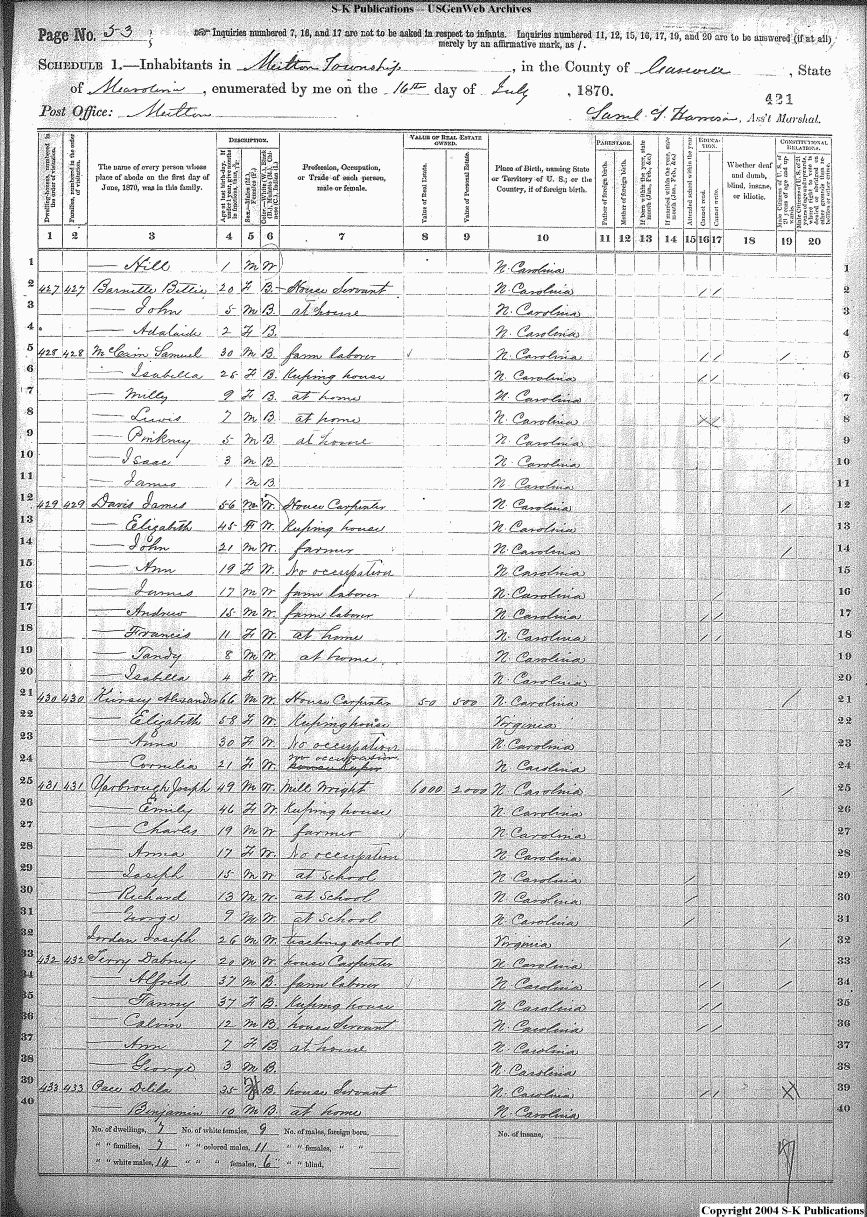 S-K Publications — USGenWeb Archives
Page No. 53
Inquiries numbered 7, 16, and 17 are not to be asked in respect to infants. Inquiries numbered 11, 12, 15, 16, 17, 19, and 20 are to be answered (if at all)
merely by an affirmative mark, as /.
SCHEDULE 1.—Inhabitants in Milton Township, in the County of Caswell, State
of N Carolina, enumerated by me on the 16th day of July, 1870.
421
Post Office: Milton Saml Harrison, Ass't Marshal.
Dwelling-houses, numbered in the order of visitation.
Families, numbered in the order of visitation.
The name of every person whose place of abode on the first day of June, 1870, was in this family.
DESCRIPTION.
Age at last birth-day. If under 1 year, give months in fractions, thus,
Sex.—Males (M.), Females (F.)
Color.—White (W.), Black (B.), Mulatto (M.), Chinese (C.), Indian (I.)
Profession, Occupation, or Trade of each person, male or female.
VALUE OF REAL ESTATE OWNED.
Value of Real Estate.
Value of Personal Estate.
Place of Birth, naming State or Territory of U. S.; or the Country, if of foreign birth.
PARENTAGE.
Father of foreign birth.
Mother of foreign birth.
If born within the year, state month (Jan., Feb., &c.)
If married within the year, state month (Jan., Feb., &c.)
EDUCATION.
Attended school within the year.
Cannot read.
Cannot write.
Whether deaf and dumb, blind, insane, or idiotic.
CONSTITUTIONAL RELATIONS.
Male Citizens of U. S. of 21 years of age and upwards.
1 2 3 4 5 6 7 8 9 10 11 12 13 14 15 16 17 18 19 20
1 — Hill 1 M W N. Carolina 1
2 427 427 Barnette Bettie 20 F B House Servant N. Carolina / / 2
3 — John 5 M B at house N. Carolina 3
4 — Adalaide 2 F B N. Carolina 4
5 428 428 McCain Samuel 30 M B farm laborer N. Carolina / / / 5
6 — Isabella 26 F B Keeping house N. Carolina / / 6
7 — Milly 9 F B at home N. Carolina 7
8 — Lewis 7 M B at home N. Carolina 8
9 — Pinkney 5 M B at house N. Carolina 9
10 — Isaac 3 M B N. Carolina 10
11 — James 1 M B N. Carolina 11
12 429 429 Davis James 56 M W House Carpenter N. Carolina / 12
13 — Elizabeth 45 F W Keeping house N. Carolina 13
14 — John 21 M W farmer N. Carolina / 14
15 — Ann 19 F W No occupation N. Carolina 15
16 — James 17 M W farm laborer N. Carolina / 16
17 — Andrew 15 M W farm laborer N. Carolina / / 17
18 — Francis 11 F W at home N. Carolina / / 18
19 — Tandy 8 M W at home N. Carolina 19
20 — Isabella 4 F W N. Carolina 20
21 430 430 Kiersey Alexander 66 M W House Carpenter 50 500 N. Carolina / 21
22 — Elizabeth 58 F W Keeping house Virginia 22
23 — Anna 30 F W No occupation N. Carolina 23
24 — Cornelia 21 F W no occupation N. Carolina 24
25 431 431 Yarbrough Joseph 49 M W Mill Wright 6000 2000 N. Carolina / 25
26 — Emily 46 F W Keeping house N. Carolina 26
27 — Charles 19 M W farmer N. Carolina 27
28 — Anna 17 F W No occupation N. Carolina 28
29 — Joseph 15 M W at School N. Carolina / 29
30 — Richard 13 M W at School N. Carolina / 30
31 — George 9 M W at School N. Carolina / 31
32 Jordan Joseph 26 M W teaching school Virginia / 32
33 432 432 Terry Dabney 20 M W house Carpenter N. Carolina 33
34 — Alfred 37 M B farm laborer N. Carolina / / / 34
35 — Fanny 37 F B Keeping house N. Carolina / / 35
36 — Calvin 12 M B house Servant N. Carolina / / 36
37 — Ann 7 F B at house N. Carolina 37
38 — George 3 M B N. Carolina 38
39 433 433 Pace Delila 35 F B house Servant N. Carolina / / X 39
40 — Benjamin 10 M B at home N. Carolina 40
No. of dwellings, 7 No. of white females, 9 No. of males, foreign born, No. of insane,
" " families, 7 " " colored males, 11 " " females, " "
" " white males, 14 " " " females, 6 " " blind,
Copyright 2004 S-K Publications